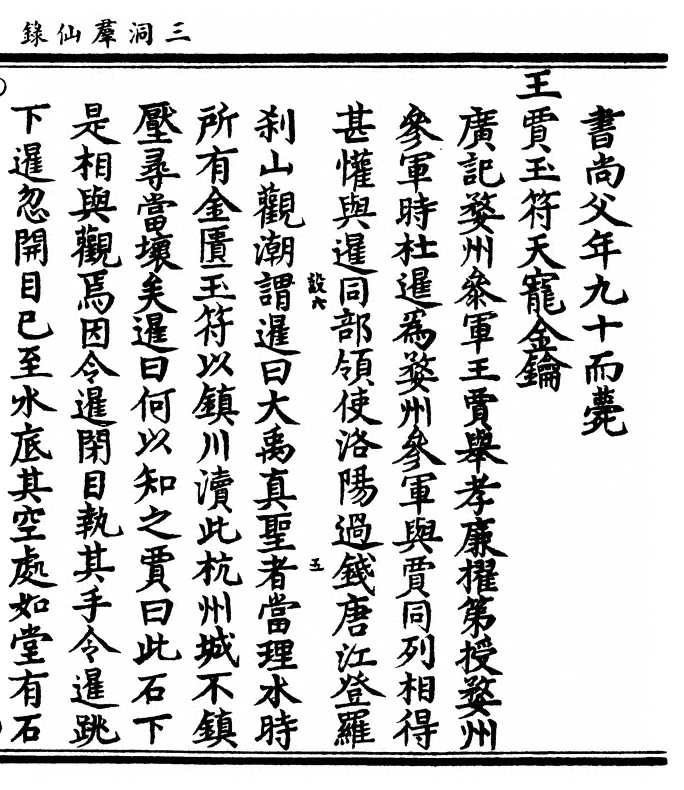 三洞羣仙錄
書尚父年九十而薨
王賈玉符天寵金鑰
廣記婺州叅軍王賈舉孝廉擢第授婺州
參軍時杜暹為婺州參軍與賈同列相得
甚懽與暹同部領使洛陽過錢唐江登羅
設六
五
刹山觀潮謂暹曰大禹真聖者當理水時
所有金匱玉符以鎮川瀆此杭州城不鎮
壓尋當壞矣暹曰何以知之賈曰此石下
是相與觀焉因令暹閉目執其手令暹跳
下暹忽開目已至水底其空處如堂有石